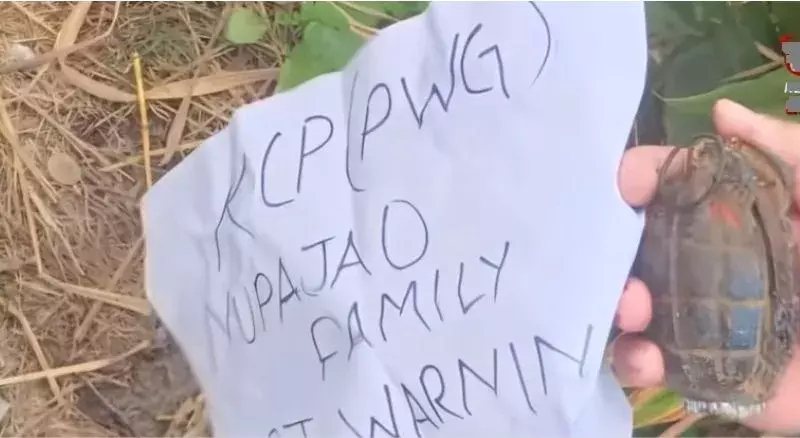 KCP(PWG)
NUPAJAO
FAMILY
ST WARNIN